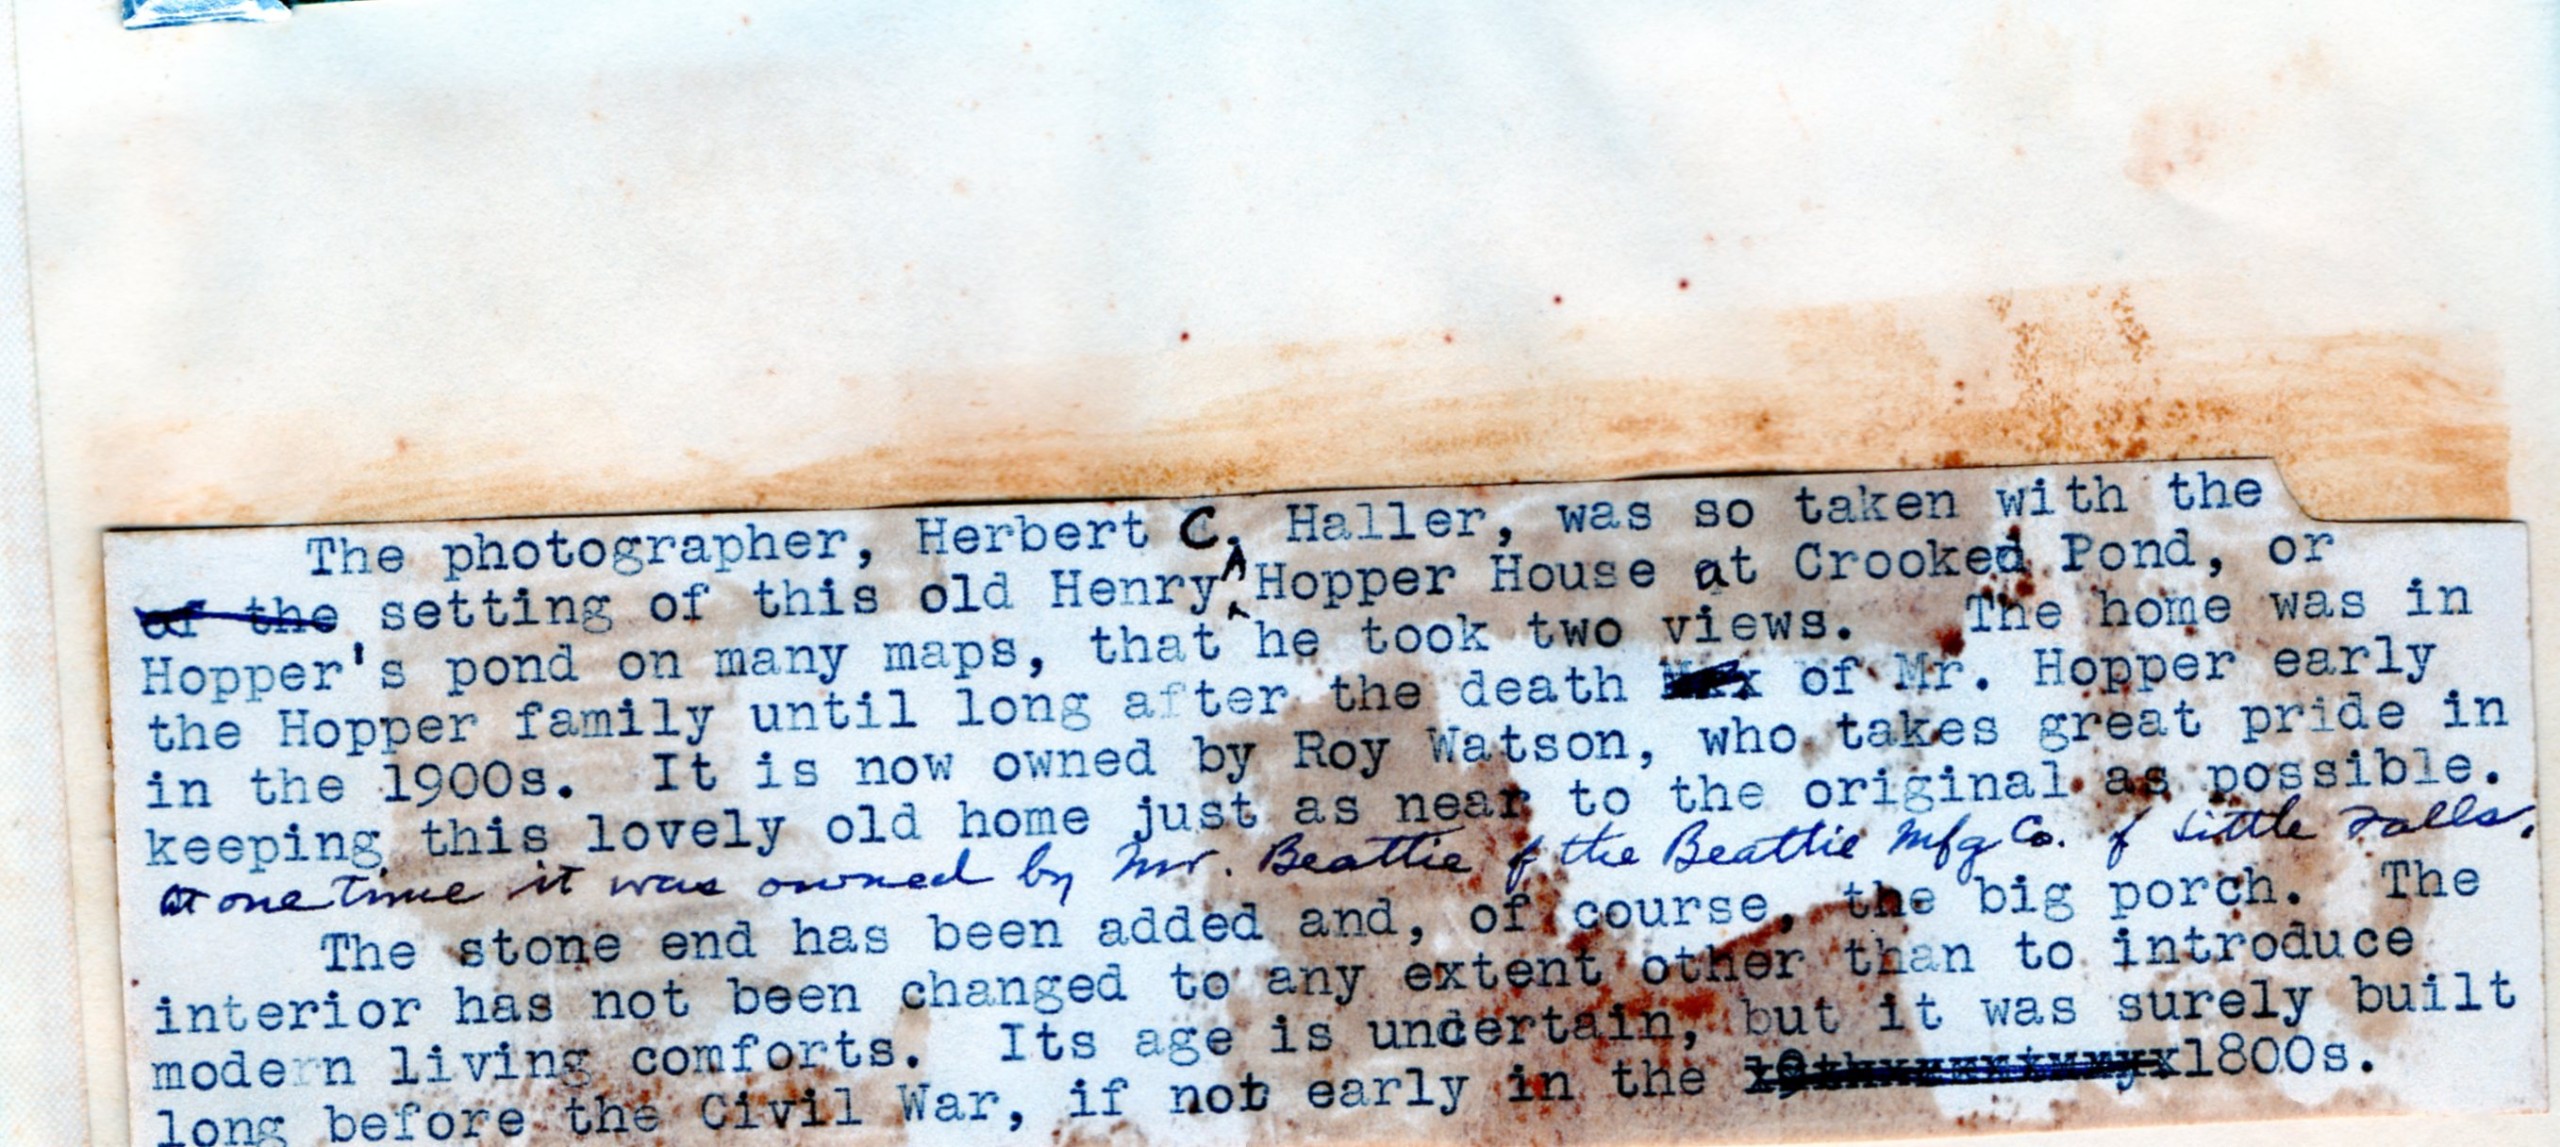 The photographer, Herbert C. Haller, was so taken with the
of the setting of this old Henry Hopper House at Crooked Pond, or
Hopper's pond on many maps, that he took two views. The home was in
the Hopper family until long after the death of Mr. Hopper early
in the 1900s. It is now owned by Roy Watson, who takes great pride in
keeping this lovely old home just as near to the original as possible.
At one time it was owned by Mr. Beattie of the Beattie Mfg Co. of Little Falls.
The stone end has been added and, of course, the big porch. The
interior has not been changed to any extent other than to introduce
modern living comforts. Its age is uncertain, but it was surely built
long before the Civil War, if not early in the 1800s.